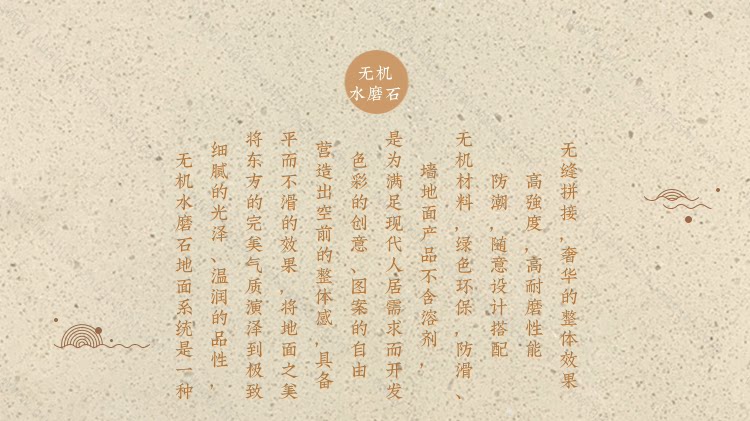 无机
水磨石
无机水磨石地面系统是一种
细腻的光泽、温润的品性，
将东方的完美气质演泽到极致
平而不滑的效果，将地面之美
营造出空前的整体感，具备
色彩的创意、图案的自由
是为满足现代人居需求而开发
墙地面产品不含溶剂，
无机材料，绿色环保，防滑、
防潮，随意设计搭配
高強度，高耐磨性能
无缝拼接，奢华的整体效果